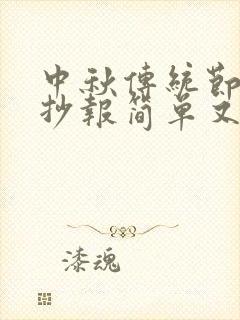 中秋傳統節
抄報简單又
漆魂